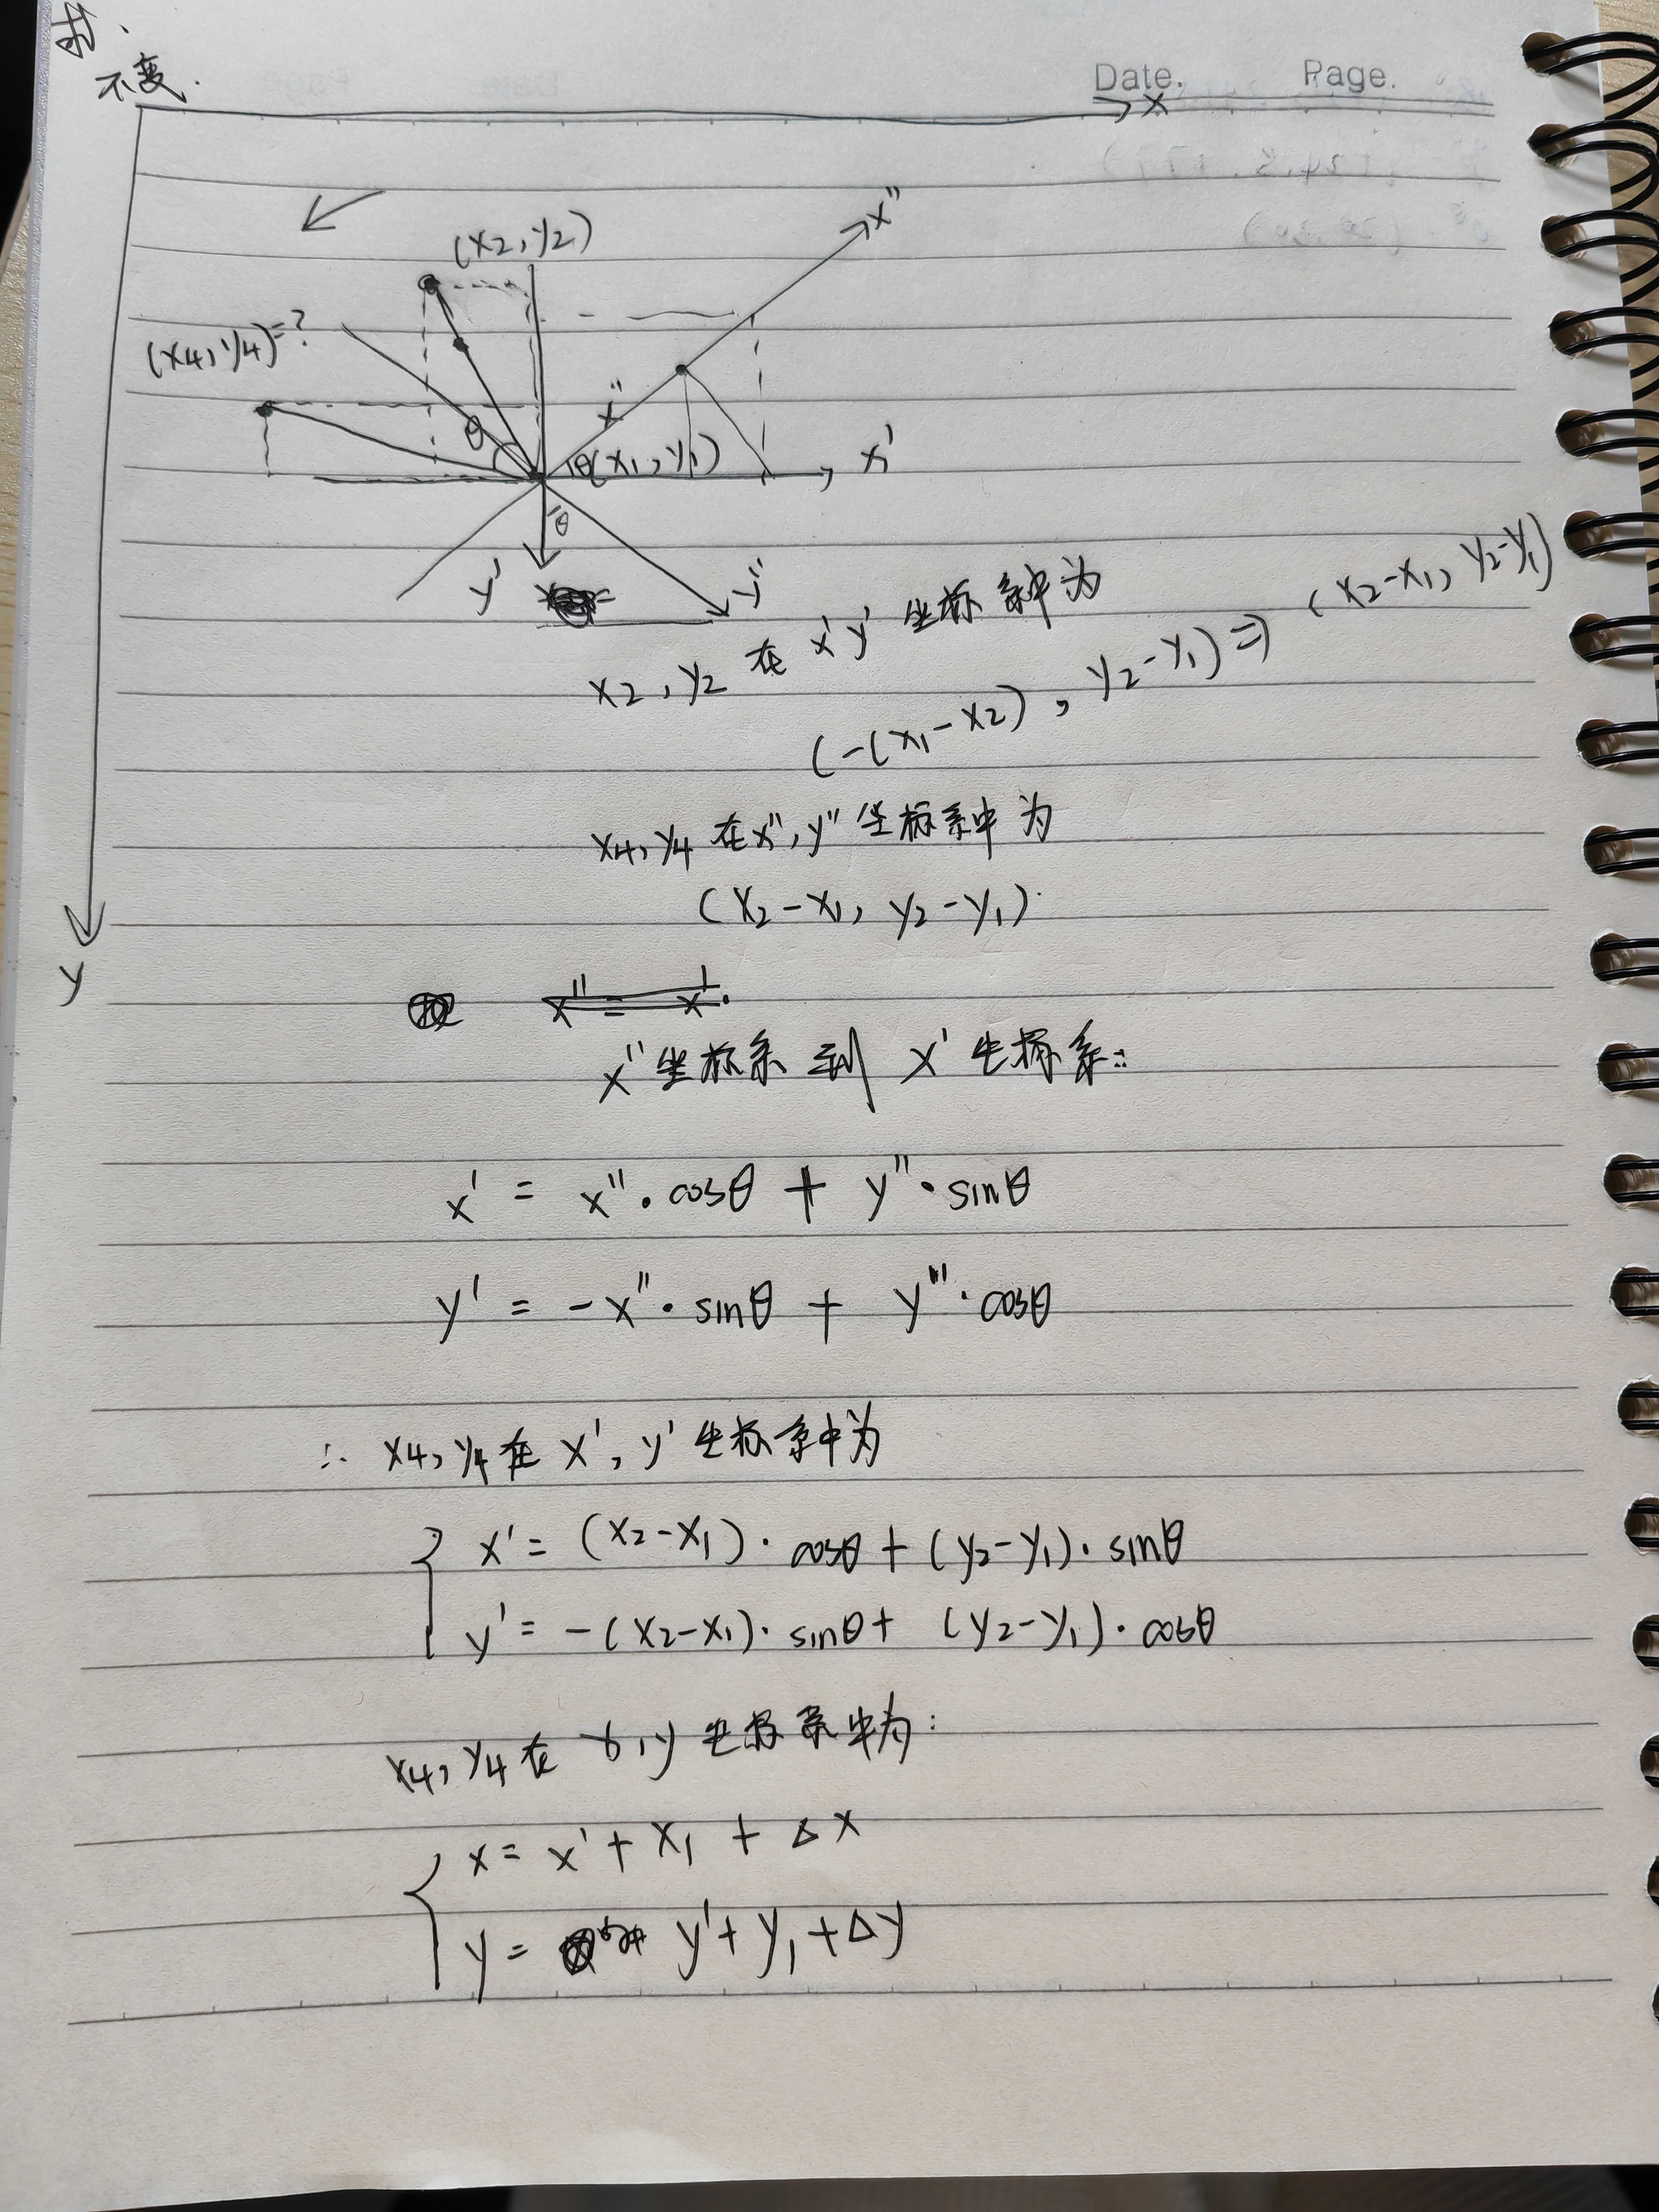 不变.
Date. Page.
x
x''
(x2, y2)
(x4, y4)=?
θ
x''
θ(x1, y1)
x'
θ
y'
y''
x2, y2 在 x' y' 坐标系中为
(-(x1-x2), y2-y1) ⇒ (x2-x1, y2-y1)
x4, y4 在 x'', y'' 坐标系中为
(x2-x1, y2-y1).
y
x'' = x'.
x'' 坐标系 到 x' 坐标系:
x' = x''·cosθ + y''·sinθ
y' = -x''·sinθ + y'''·cosθ
∴ x4, y4 在 x', y' 坐标系中为
x' = (x2-x1)·cosθ + (y2-y1)·sinθ
y' = -(x2-x1)·sinθ + (y2-y1)·cosθ
x4, y4 在 x, y 坐标系中为:
x = x' + x1 + Δx
y = y' + y1 + Δy